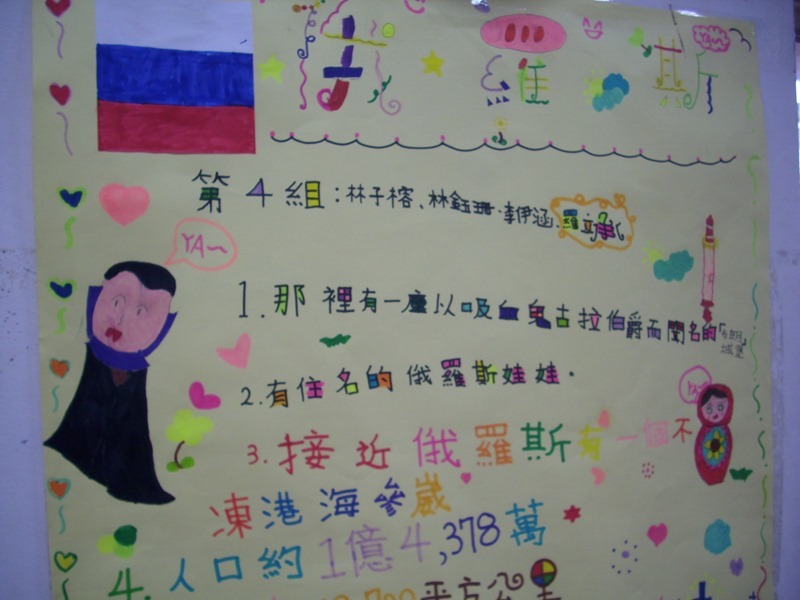 俄羅斯
第4組:林子榕、林鈺珊.李伊涵、羅
YA~
1.那裡有一座以吸血鬼古拉伯爵而聞名的「布朗城堡」
2.有住名的俄羅斯娃娃.
3.接近俄羅斯有一個不
凍港海參崴
4.人口約1億4,378萬
平方公里